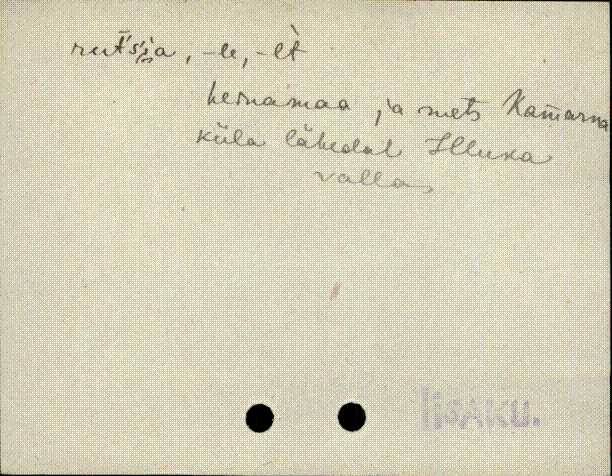 rut's'ja, -u, -it
heinamaa ja mets Kamarna
küla lähedal Illuka
vallas
Iisaku.